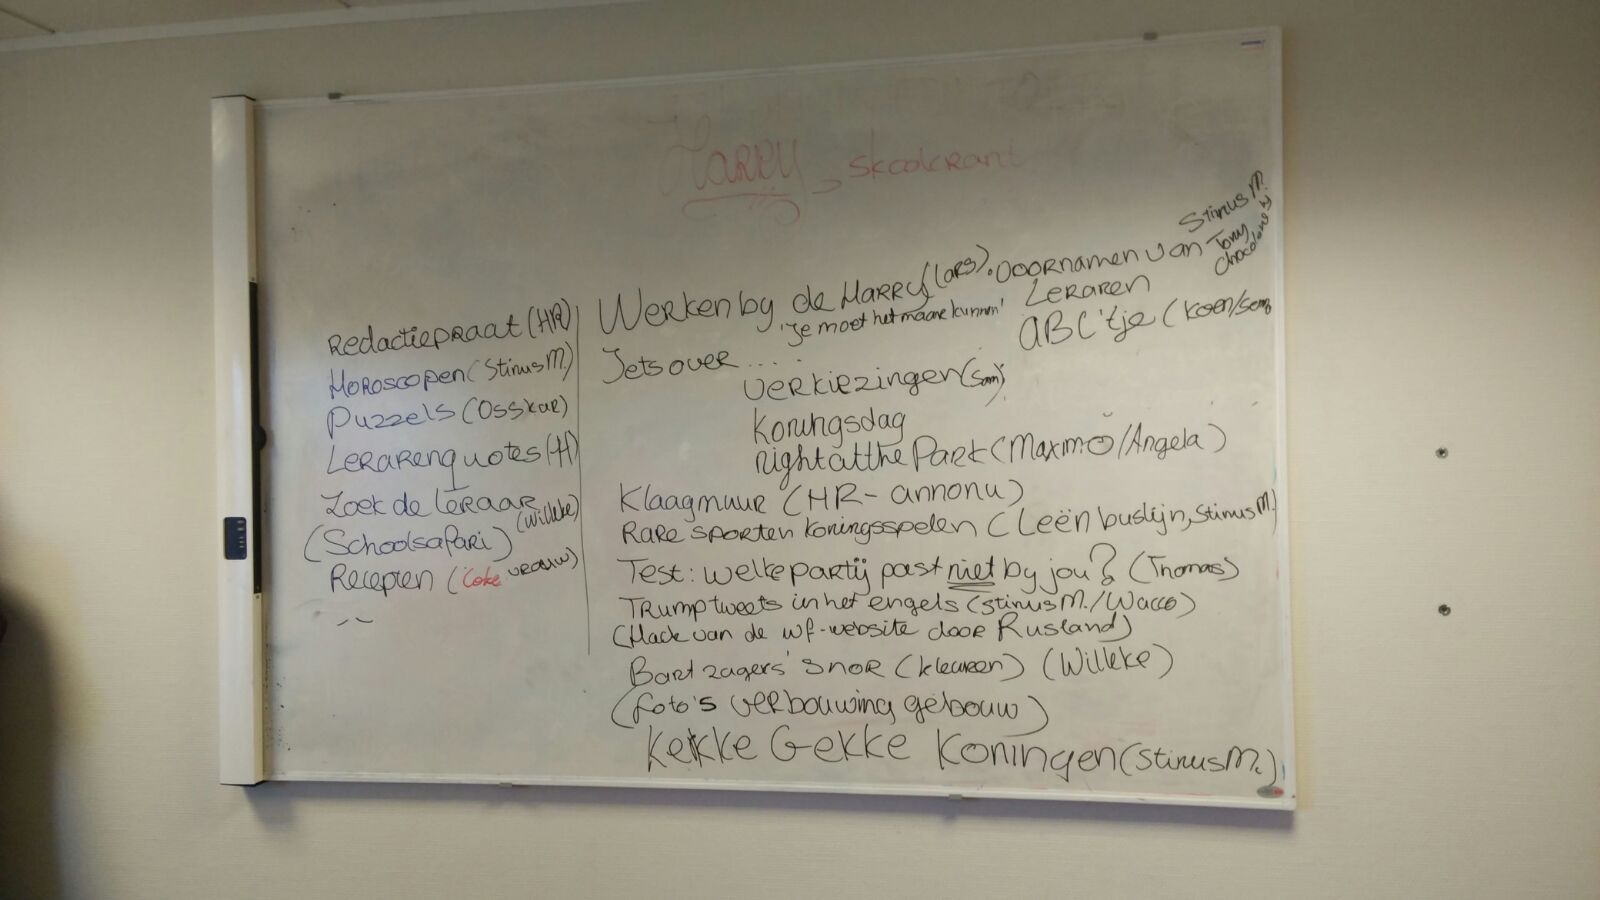 HARRY, skoolkrant
Redactiepraat (HR)
Horoscopen (Stinus M.)
Puzzels (Osskar)
Lerarenquotes (H)
Zoek de leraar
(Willeke)
(Schoolsafari)
Recepten (Coke vrouw)
Werken by de Harry (Lars)
'Je moet het maar kunnen'
• Doornamen van
Leraren
Stinus M.
Tony
ABC'tje (Koen/Sem)
Iets over ....
verkiezingen (Sam)
Koningsdag
night at the Park (Maximo/Angela)
Klaagmuur (HR - annonu)
Rare sporten koningsspelen (Leën buslijn, Stinus M.)
Test: welke partij past niet by jou? (Thomas)
Trump tweets in het engels (Stinus M./Wacco)
(Hack van de wf-website door Rusland)
Bart zagers' snor (kleuren) (Willeke)
(foto's verbouwing gebouw)
Kekke Gekke Koningen (Stinus M.)